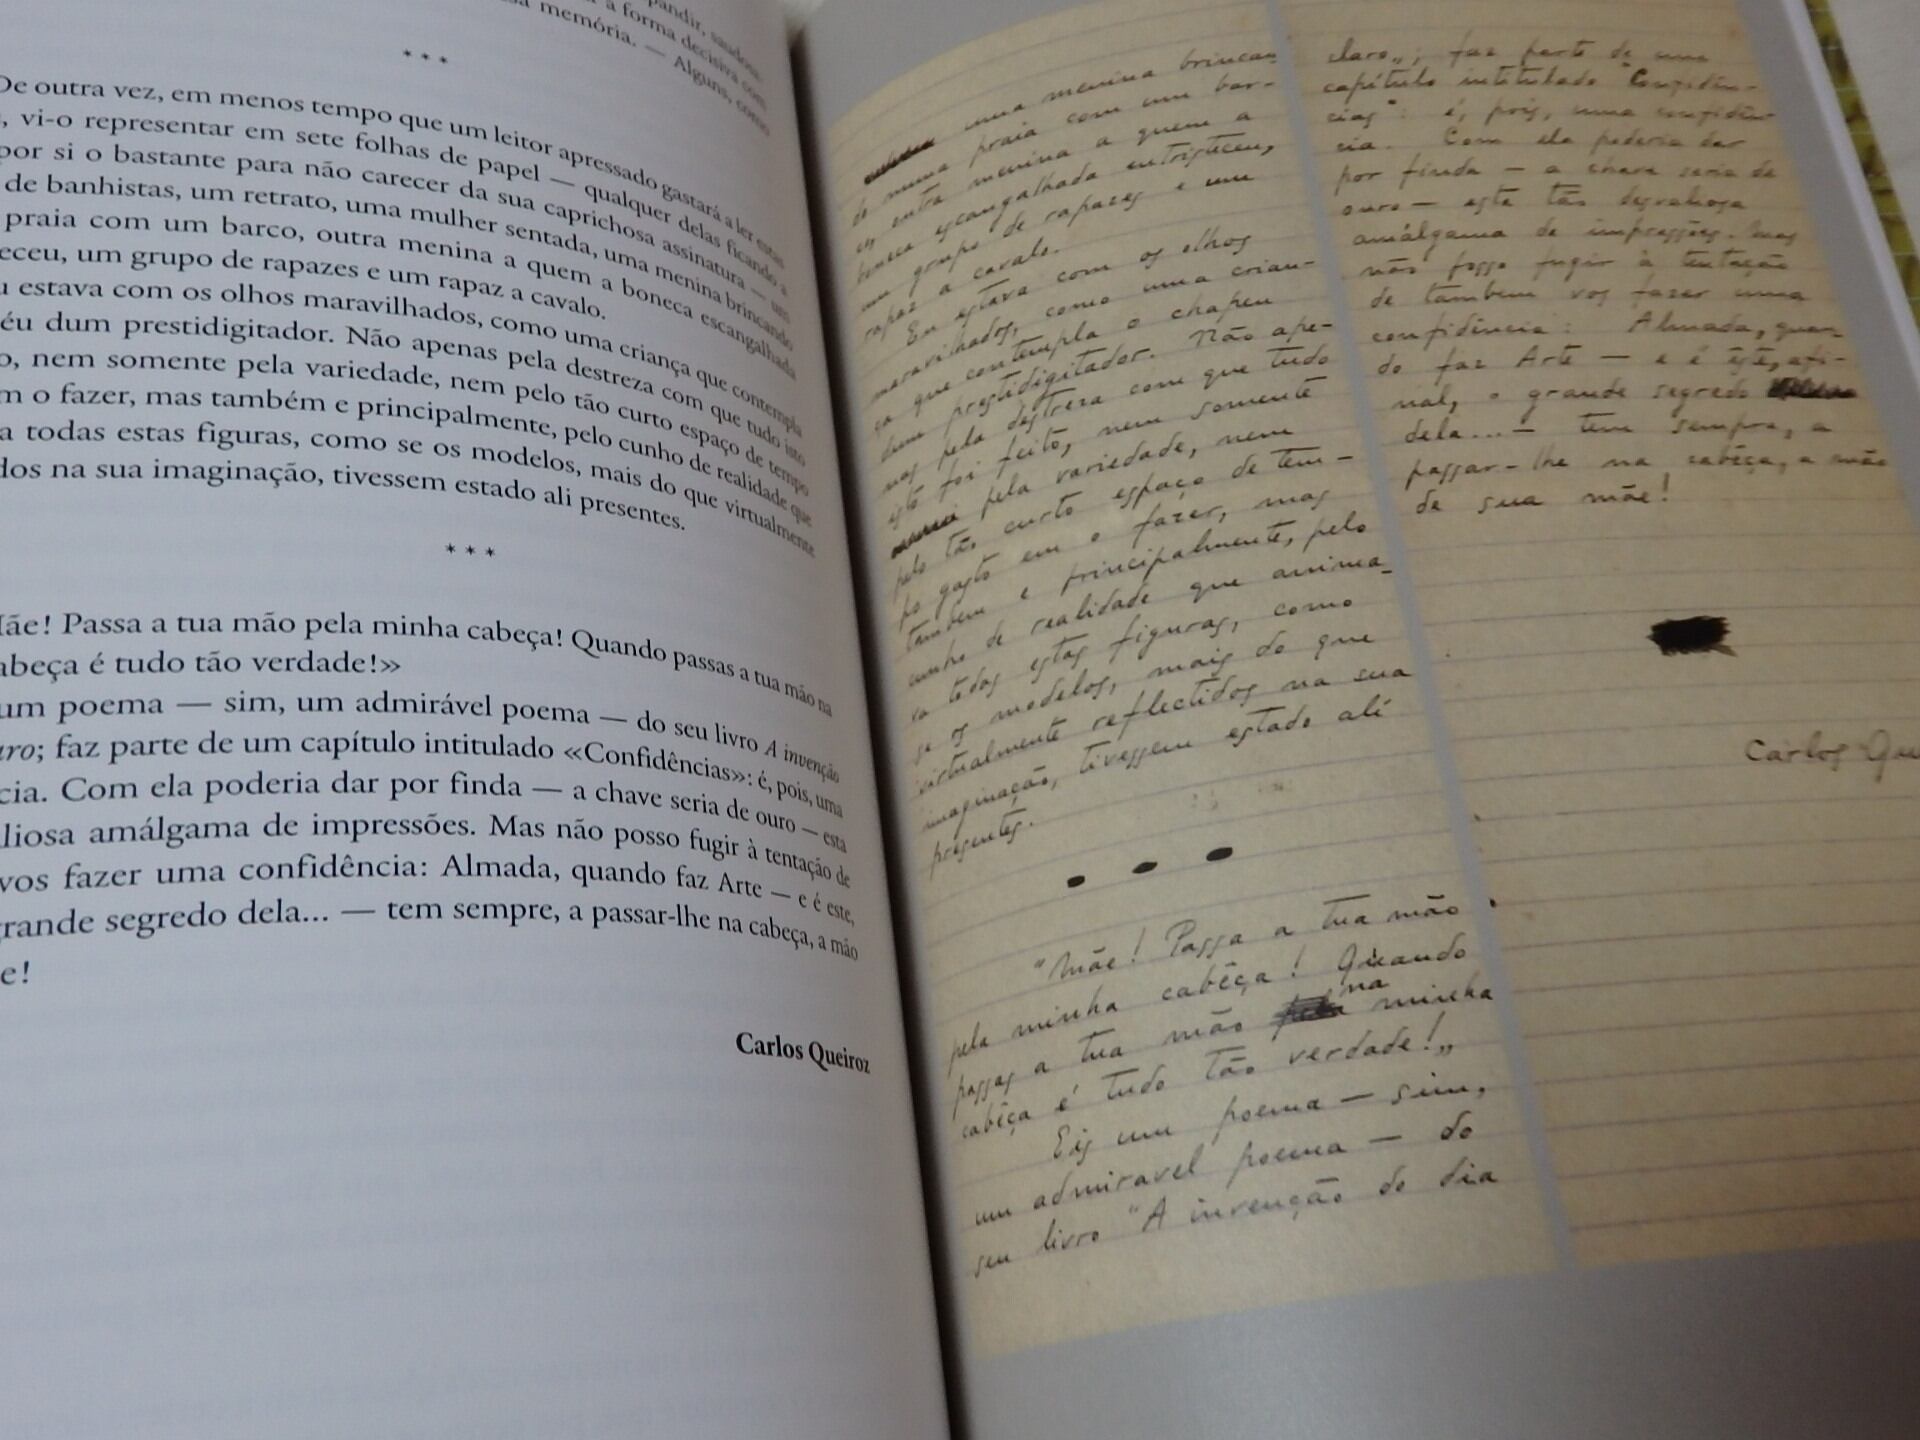 pandir, saudosa
à forma decisiva com
sa memória. — Alguns, como
* * *
De outra vez, em menos tempo que um leitor apressado gastará a ler estas
, vi-o representar em sete folhas de papel — qualquer delas ficando a
por si o bastante para não carecer da sua caprichosa assinatura — um
de banhistas, um retrato, uma mulher sentada, uma menina brincando
praia com um barco, outra menina a quem a boneca escangalhada
eceu, um grupo de rapazes e um rapaz a cavalo.
u estava com os olhos maravilhados, como uma criança que contempla
éu dum prestidigitador. Não apenas pela destreza com que tudo isto
o, nem somente pela variedade, nem pelo tão curto espaço de tempo
m o fazer, mas também e principalmente, pelo cunho de realidade que
a todas estas figuras, como se os modelos, mais do que virtualmente
dos na sua imaginação, tivessem estado ali presentes.
* * *
Mãe! Passa a tua mão pela minha cabeça! Quando passas a tua mão na
abeça é tudo tão verdade!»
um poema — sim, um admirável poema — do seu livro A invenção
aro; faz parte de um capítulo intitulado «Confidências»: é, pois, uma
cia. Com ela poderia dar por finda — a chave seria de ouro — esta
liosa amálgama de impressões. Mas não posso fugir à tentação de
vos fazer uma confidência: Almada, quando faz Arte — e é este,
grande segredo dela... — tem sempre, a passar-lhe na cabeça, a mão
e!
Carlos Queiroz
uma menina brincan-
do numa praia com um bar-
co, outra menina a quem a
boneca escangalhada entristeceu,
um grupo de rapazes e um
rapaz a cavalo.
Eu estava com os olhos
maravilhados, como uma crian-
ça que contempla o chapeu
dum prestidigitador. Não ape-
nas pela destreza com que tudo
isto foi feito, nem somente
pela variedade, nem
pelo tão curto espaço de tem-
po gasto em o fazer, mas
tambem e principalmente, pelo
cunho de realidade que anima-
va todas estas figuras, como
se os modelos, mais do que
virtualmente reflectidos na sua
imaginação, tivessem estado ali
presentes.
"Mãe! Passa a tua mão
pela minha cabêça! Quando
passas a tua mão na minha
cabêça é tudo tão verdade!„
Eis um poema — sim,
um admiravel poema — do
seu livro "A invenção do dia
claro„; faz parte de um
capítulo intitulado "Confidên-
cias": é, pois, uma confidên-
cia. Com ela poderia dar
por finda — a chave seria de
ouro — esta tão desvaliosa
amálgama de impressões. Mas
não posso fugir à tentação
de tambem vos fazer uma
confidência: Almada, quan-
do faz Arte — e é êste, afi-
nal, o grande segredo
dela... — tem sempre, a
passar-lhe na cabêça, a mão
de sua mãe!
Carlos Que